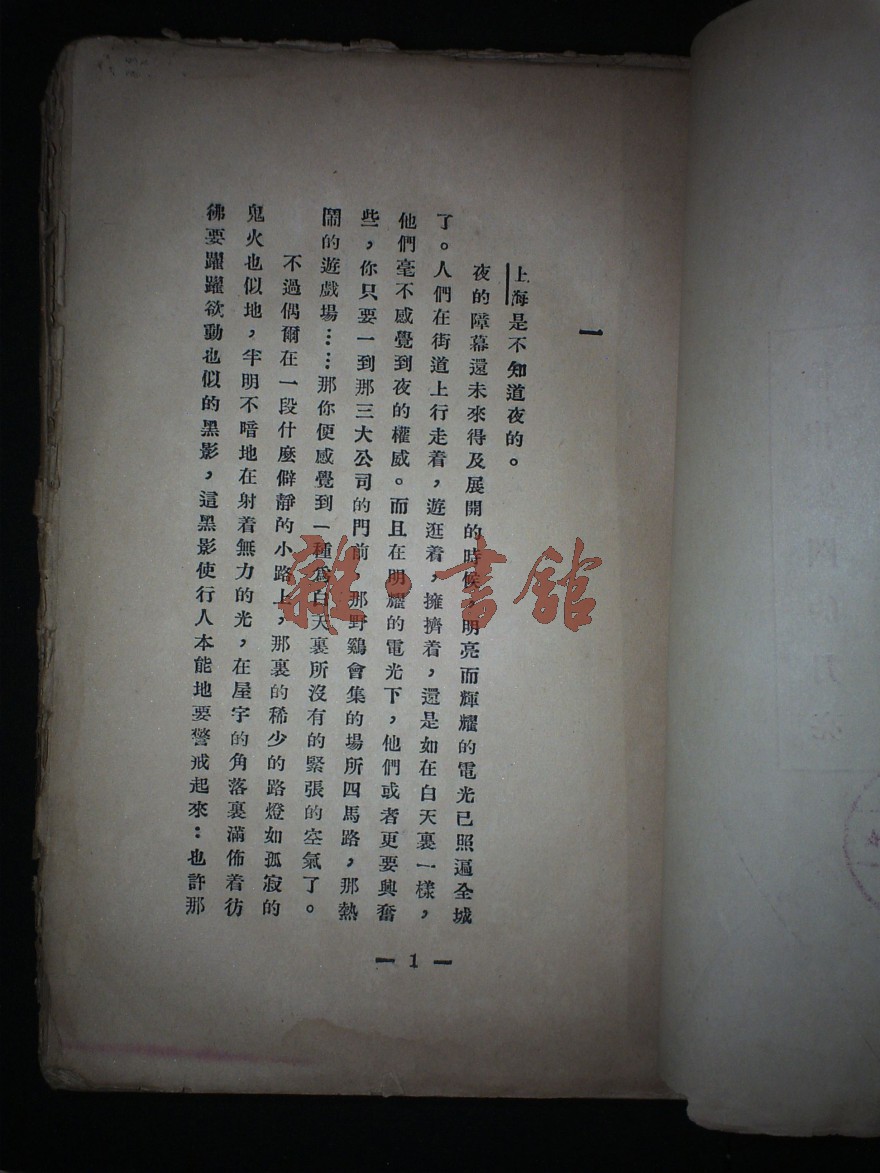 一
上海是不知道夜的。
夜的障幕還未來得及展開的時候，明亮而輝耀的電光已照遍全城
了。人們在街道上行走着，遊逛着，擁擠着，還是如在白天裏一樣，
他們毫不感覺到夜的權威。而且在明耀的電光下，他們或者更要興奮
些，你只要一到那三大公司的門前，那野鷄會集的場所四馬路，那熱
鬧的遊戲場……那你便感覺到一種爲白天裏所沒有的緊張的空氣了。
不過偶爾在一段什麼僻靜的小路上，那裏的稀少的路燈如孤寂的
鬼火也似地，半明不暗地在射着無力的光，在屋宇的角落裏滿佈着彷
彿要躍躍欲動也似的黑影，這黑影使行人本能地要警戒起來：也許那
1
雜·書館